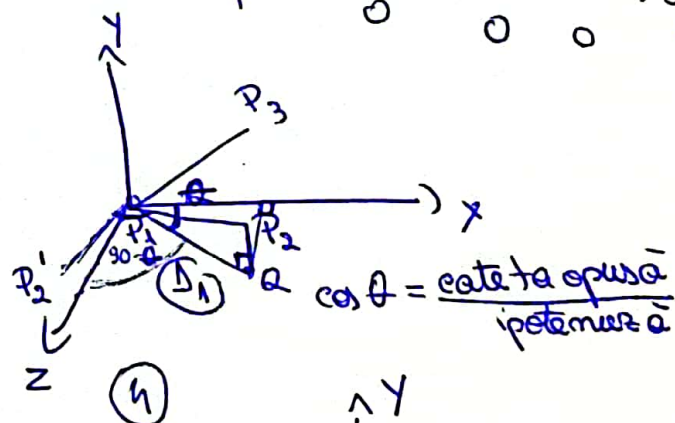 Y
P3
θ
X
P1
P2
90-θ
P2'
D1
Q
cos θ = cateta opusă
ipotenuză
Z
4
Y